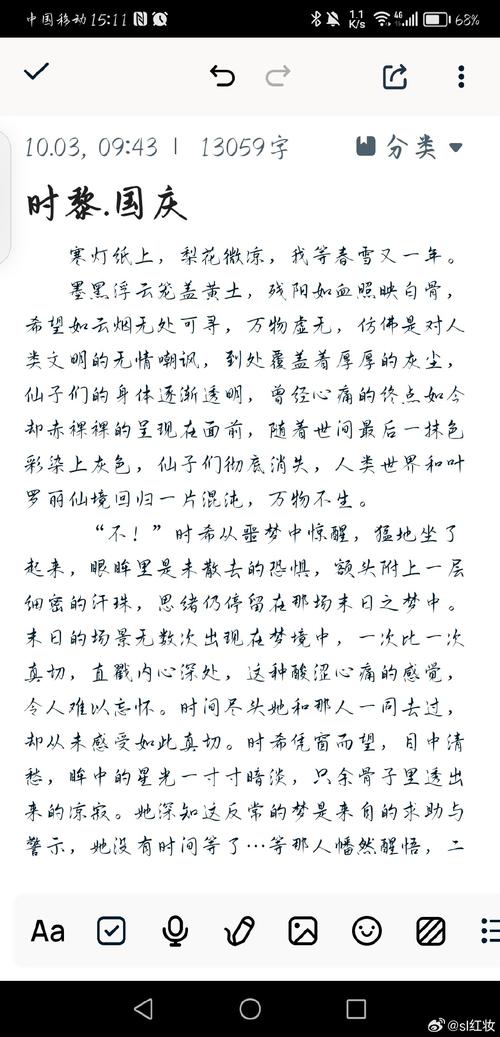 中国移动 15:11
1.1 K/s 4G 68%
10.03, 09:43 | 13059字 分类
时黎.国庆
寒灯纸上，梨花微凉，我等春雪又一年。
墨黑浮云笼盖黄土，残阳如血照映白骨，
希望如云烟无处可寻，万物虚无，仿佛是对人
类文明的无情嘲讽，到处覆盖着厚厚的灰尘，
仙子们的身体逐渐透明，曾经心痛的终点如今
却赤裸裸的呈现在面前，随着世间最后一抹色
彩染上灰色，仙子们彻底消失，人类世界和叶
罗丽仙境回归一片混沌，万物不生。
“不！”时希从噩梦中惊醒，猛地坐了
起来，眼眸里是未散去的恐惧，额头附上一层
细密的汗珠，思绪仍停留在那场末日之梦中。
末日的场景无数次出现在梦境中，一次比一次
真切，直戳内心深处，这种酸涩心痛的感觉，
令人难以忘怀。时间尽头她和那人一同去过，
却从未感受如此真切。时希凭窗而望，目中清
愁，眸中的星光一寸寸暗淡，只余骨子里透出
来的凉寂。她深知这反常的梦是来自的求助与
警示，她没有时间等了…等那人幡然醒悟，二
Aa
@sl红妆